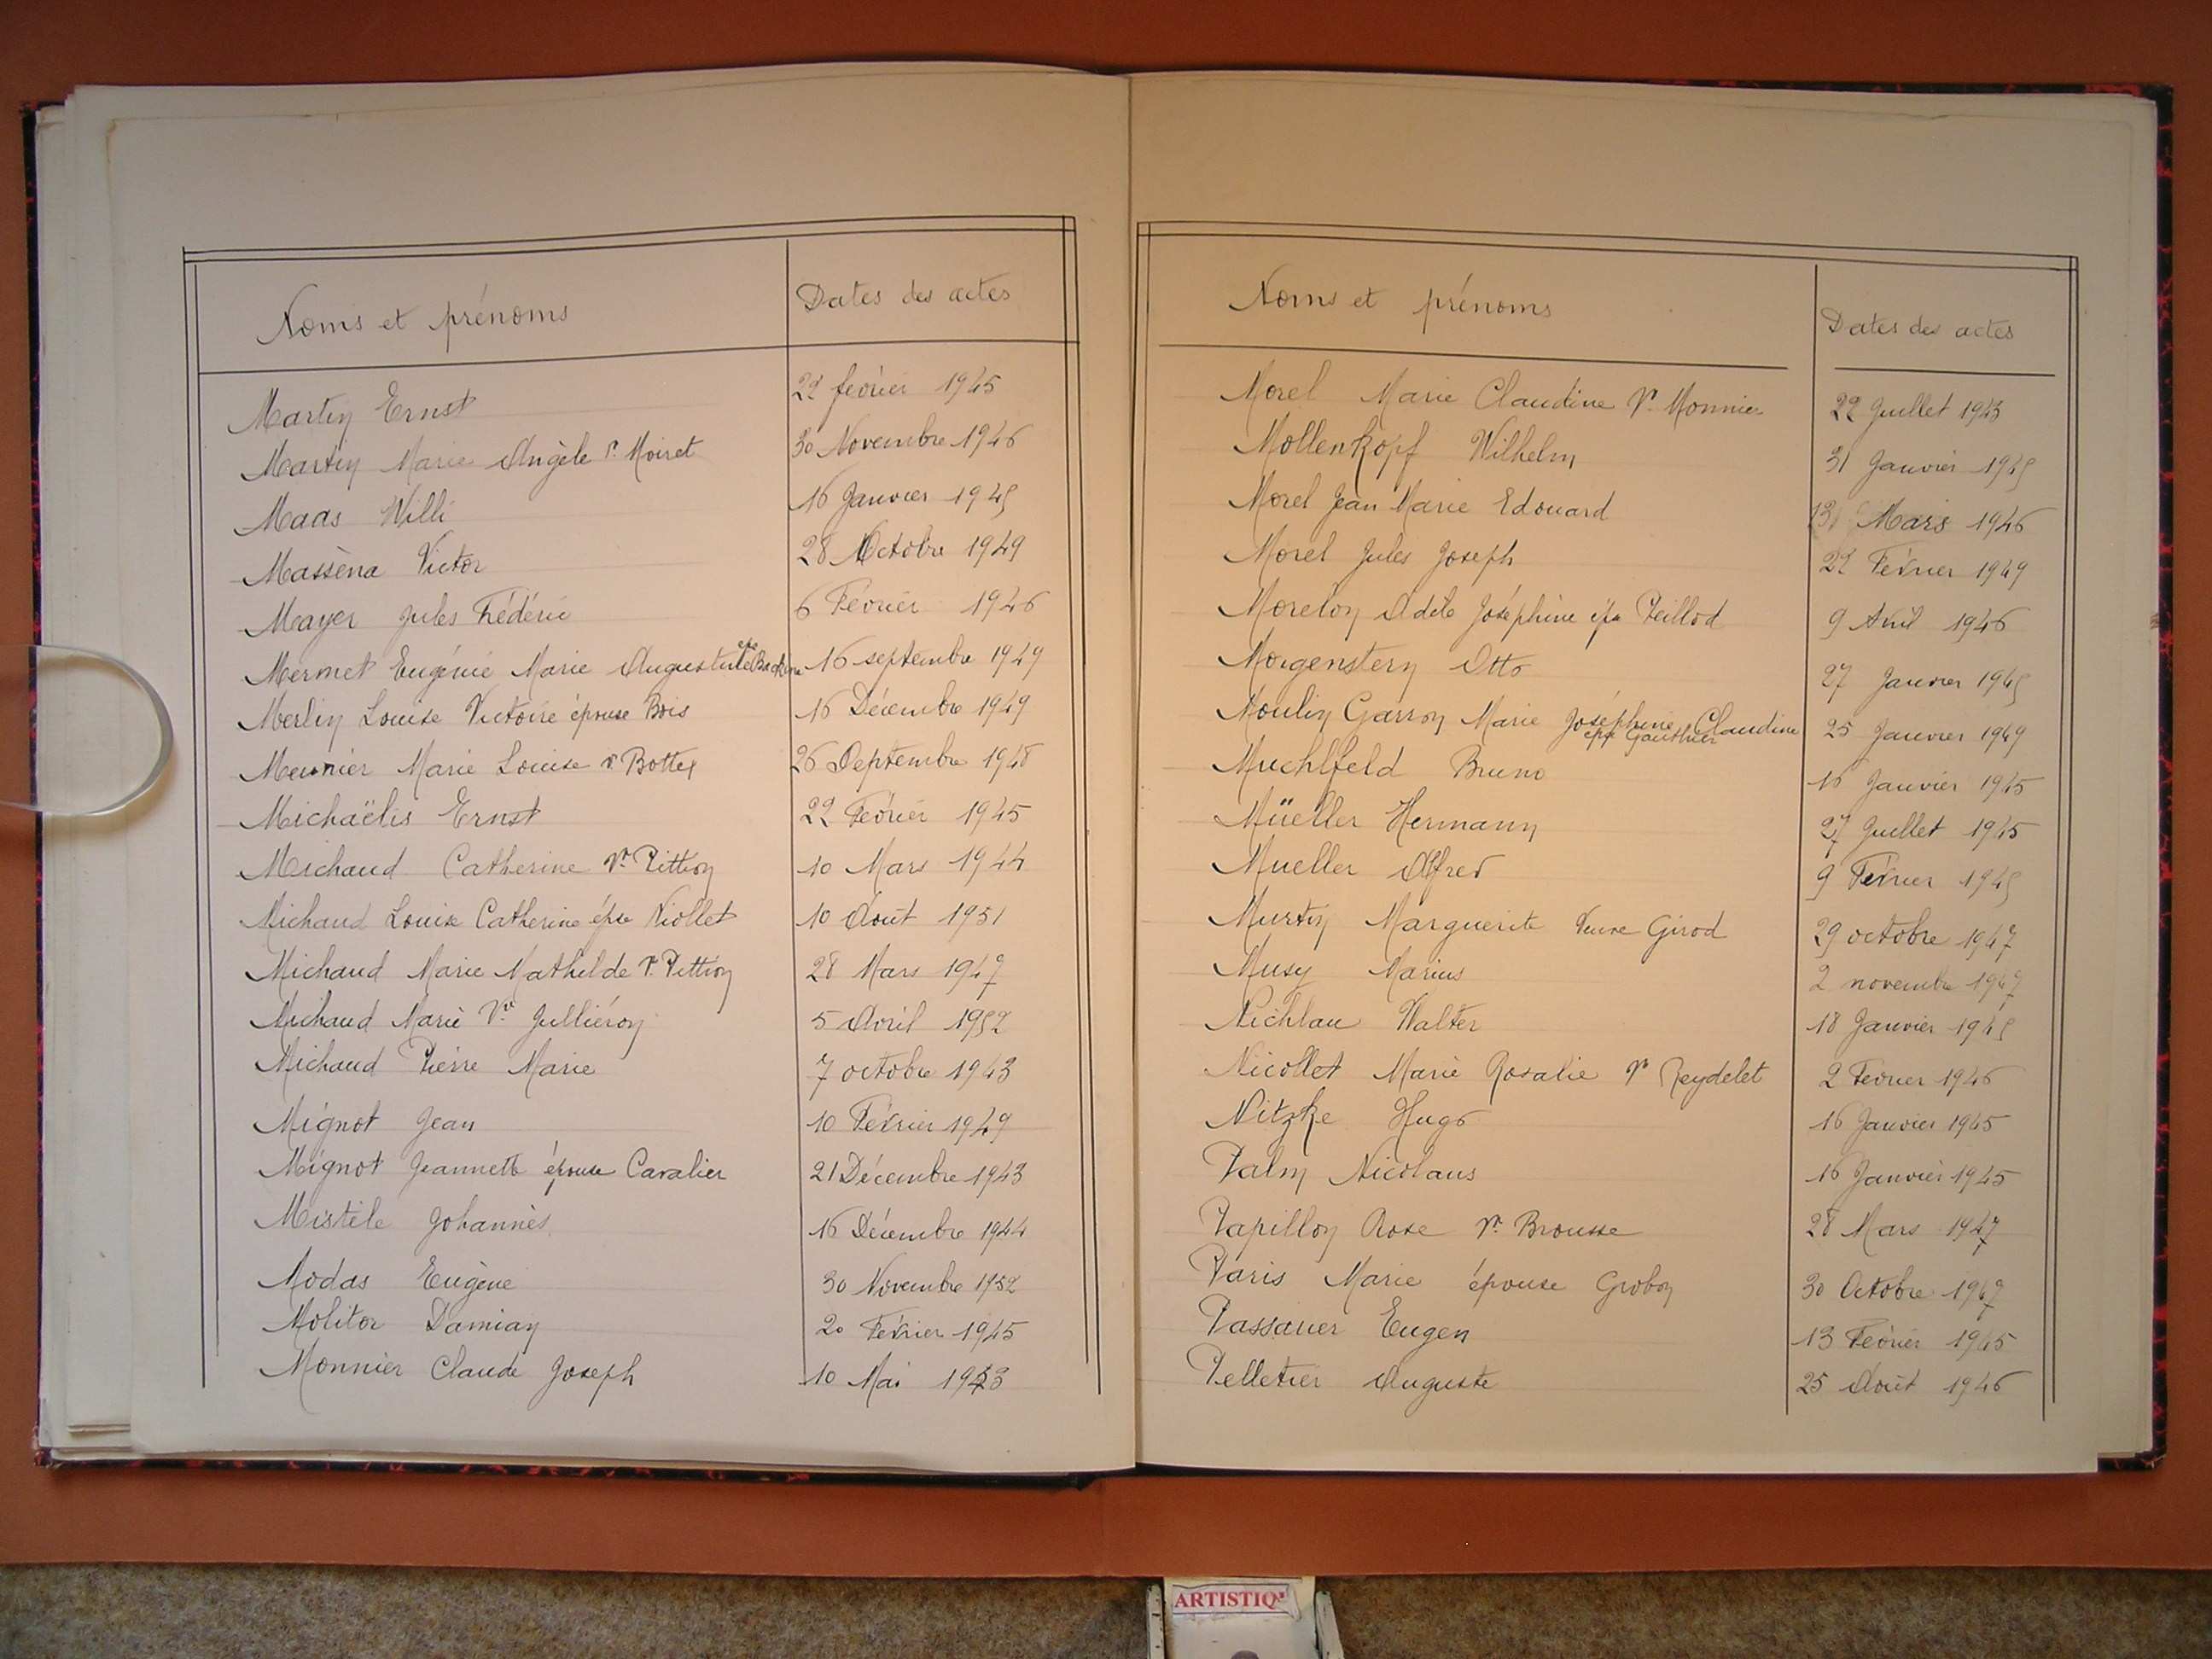 Noms et prénoms Dates des actes
Martin Ernst 22 février 1945
Martin Marie Angèle Vve Moiret 30 Novembre 1946
Maas Willi 16 Janvier 1945
Masséna Victor 28 Octobre 1949
Mayer Jules Frédéric 6 Février 1946
Mermet Eugénie Marie Augustine épse 16 septembre 1949
Merlin Louise Victoire épouse Bois 16 Décembre 1949
Meunier Marie Louise Vve Bottex 26 Septembre 1948
Michaëlis Ernst 22 Février 1945
Michaud Catherine Vve Pittion 10 Mars 1944
Michaud Louise Catherine épse Niollet 10 Août 1951
Michaud Marie Mathilde Vve Pittion 28 Mars 1947
Michaud Marie Vve Julliéron 5 Avril 1952
Michaud Pierre Marie 7 octobre 1943
Mignot Jean 10 Février 1949
Mignot Jeannette épouse Cavalier 21 Décembre 1943
Mistele Johannès 16 Décembre 1944
Modas Eugène 30 Novembre 1952
Molitor Damian 20 Février 1945
Monnier Claude Joseph 10 Mai 1953
Noms et prénoms Dates des actes
Morel Marie Claudine Vve Monnier 22 Juillet 1943
Mollenkopf Wilhelm 31 Janvier 1945
Morel Jean Marie Edouard Mars 1946
Morel Jules Joseph 22 Février 1949
Morelon Adèle Joséphine épse Peillod 9 Avril 1946
Morgenstern Otto 27 Janvier 1945
Moulin Garron Marie Joséphine Claudine 25 Janvier 1949
épse Gauthier
Muchlfeld Bruno 16 Janvier 1945
Müeller Hermann 27 Juillet 1945
Mueller Alfred 9 Février 1945
Murtin Marguerite Veuve Girod 29 octobre 1947
Musy Marius 2 novembre 1947
Nichlau Walter 18 Janvier 1945
Nicollet Marie Rosalie Vve Reydelet 2 Février 1946
Nitzke Hugo 16 Janvier 1945
Palm Nicolaus 16 Janvier 1945
Papillon Rose Vve Brousse 28 Mars 1947
Paris Marie épouse Grobon 30 Octobre 1947
Passauer Eugen 13 Février 1945
Pelletier Auguste 25 Août 1946
ARTISTIQ